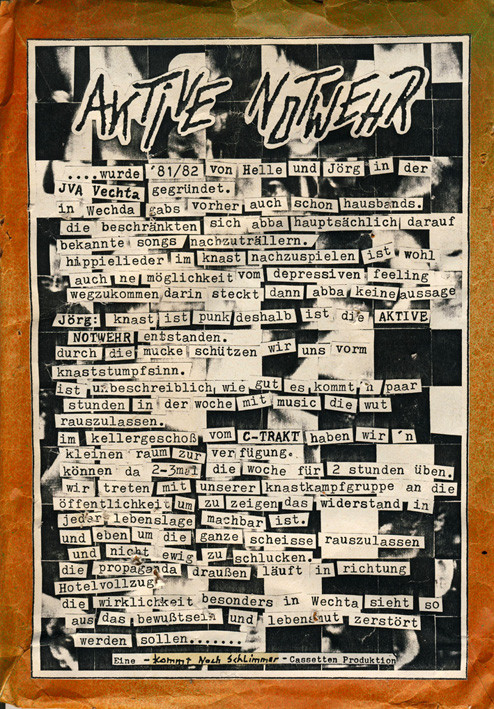 AKTIVE NOTWEHR
....wurde '81/82 von Helle und Jörg in der
JVA Vechta gegründet.
in Wechda gabs vorher auch schon hausbands.
die beschränkten sich abba hauptsächlich darauf
bekannte songs nachzuträllern.
hippielieder im knast nachzuspielen ist wohl
auch ne möglichkeit vom depressiven feeling
wegzukommen darin steckt dann abba keine aussage
Jörg: knast ist punk deshalb ist die AKTIVE
NOTWEHR entstanden.
durch die mucke schützen wir uns vorm
knaststumpfsinn.
ist unbeschreiblich, wie gut es kommt 'n paar
stunden in der woche mit music die wut
rauszulassen.
im kellergeschoß vom C-TRAKT haben wir 'n
kleinen raum zur verfügung.
können da 2-3mal die woche für 2 stunden üben.
wir treten mit unserer knastkampfgruppe an die
öffentlichkeit um zu zeigen das widerstand in
jeder lebenslage machbar ist.
und eben um die ganze scheisse rauszulassen
und nicht ewig zu schlucken.
die propaganda draußen läuft in richtung
Hotelvollzug
die wirklichkeit besonders in Wechta sieht so
aus das bewußtsein und lebensmut zerstört
werden sollen.......
Eine - Kommt Noch Schlimmer - Cassetten Produktion